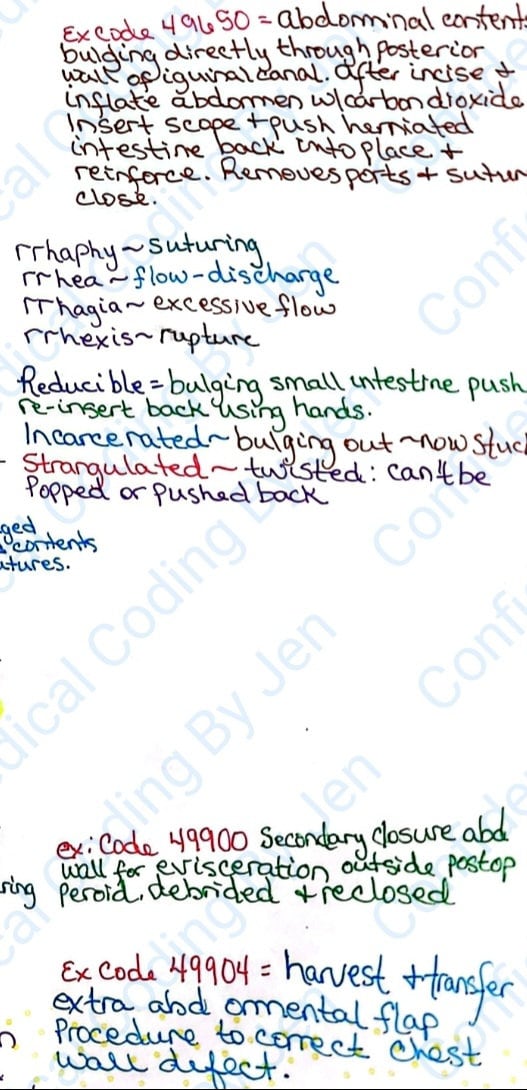 Ex code 49650 = abdominal content
bulging directly through posterior
wall of iguinal canal. After incise +
inflate abdomen w/carbon dioxide
Insert scope + push herniated
intestine back into place +
reinforce. Removes ports + sutur
close.
rrhaphy ~ suturing
rrhea ~ flow-discharge
rrhagia ~ excessive flow
rrhexis ~ rupture
Reducible = bulging small intestine push
re-insert back using hands.
Incarcerated ~ bulging out ~ now stuck
- Strangulated ~ twisted: can't be
Popped or pushed back
ged
contents
tures.
ex: Code 49900 Secondary closure abd
wall for evisceration outside postop
ring Peroid. debrided + reclosed
Ex Code 49904 = harvest + transfer
extra abd ommental flap
n Procedure to correct Chest
wall defect.
Medical Coding By Jen
Confi